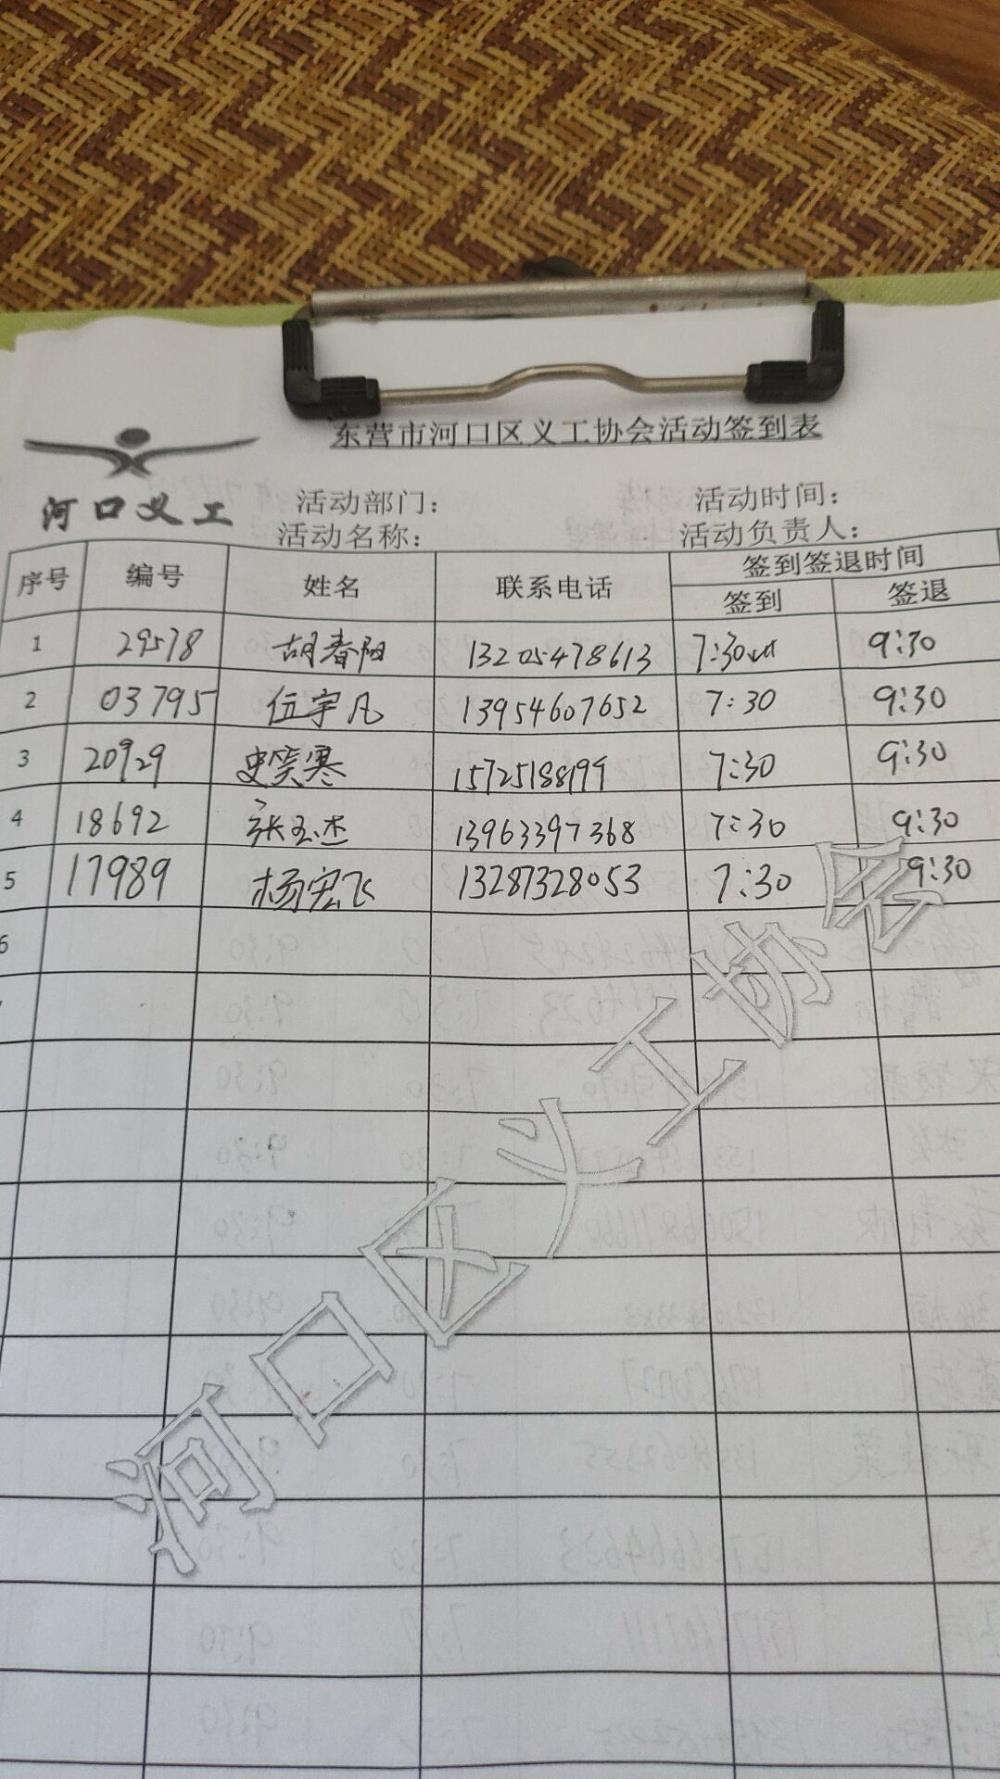 东营市河口区义工协会活动签到表
河口义工
活动部门： 活动时间：
活动名称： 活动负责人：
序号 编号 姓名 联系电话 签到签退时间
签到 签退
1 29578 胡春阳 13205478613 7:30 9:30
2 03795 伍宇凡 13954607652 7:30 9:30
3 20929 史笑寒 15725188199 7:30 9:30
4 18692 张玉杰 13963397368 7:30 9:30
5 17989 杨宏飞 13287328053 7:30 9:30
6
河口区义工协会